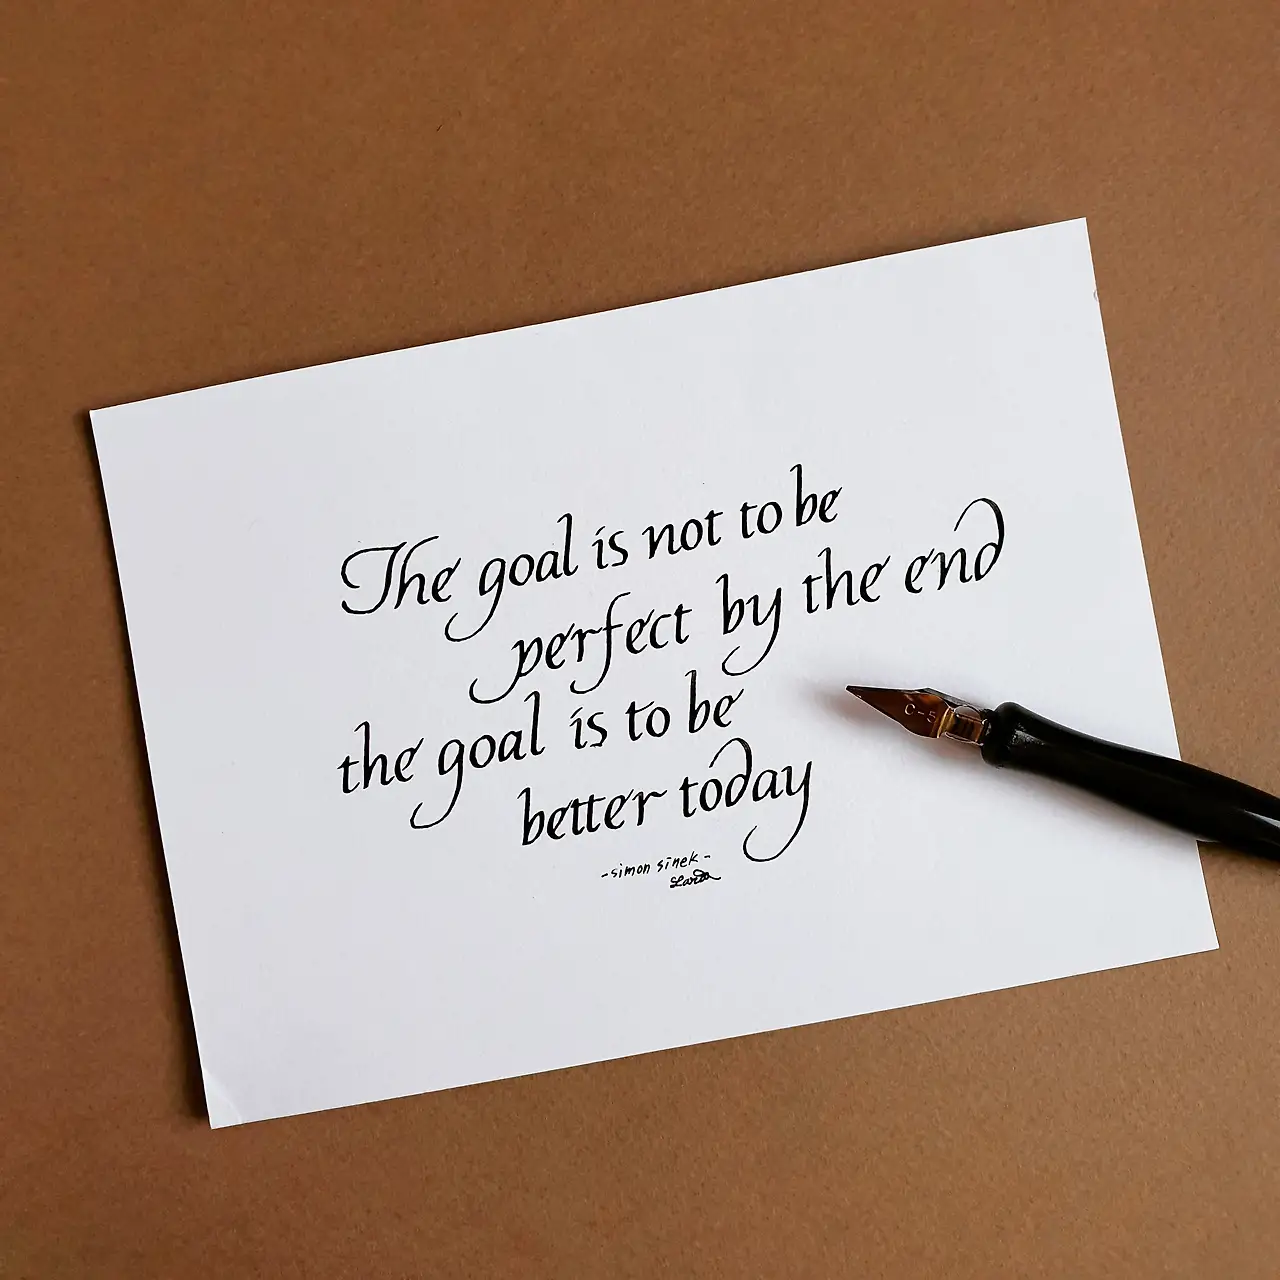 The goal is not to be
perfect by the end
the goal is to be
better today
-simon sinek-
C-5